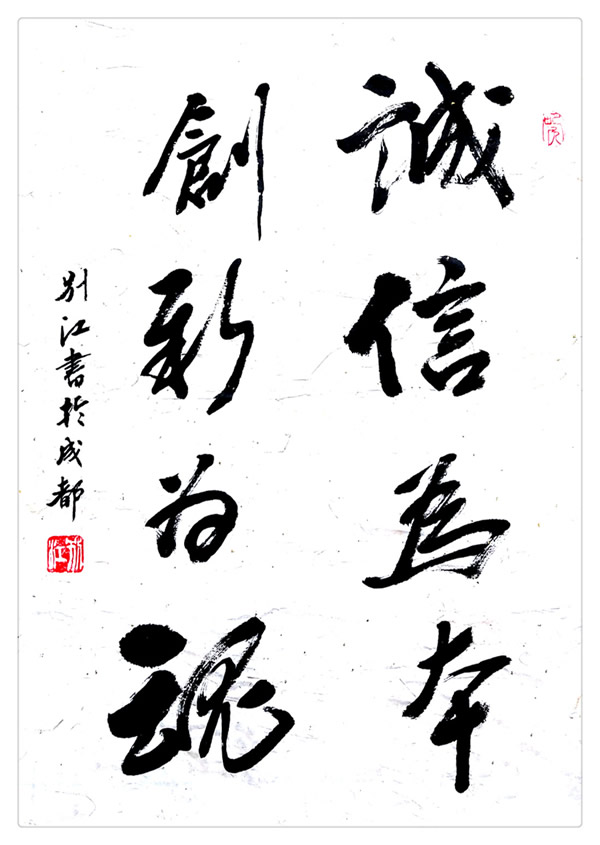 誠信為本
創新为魂
别江書於成都